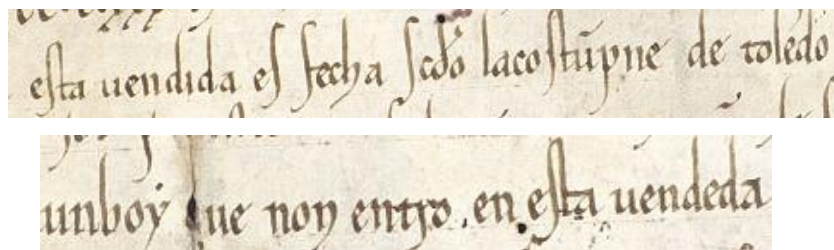 esta uendida es fecha scdo lacostūpne de toledo
unboy que non entro en esta uendeda